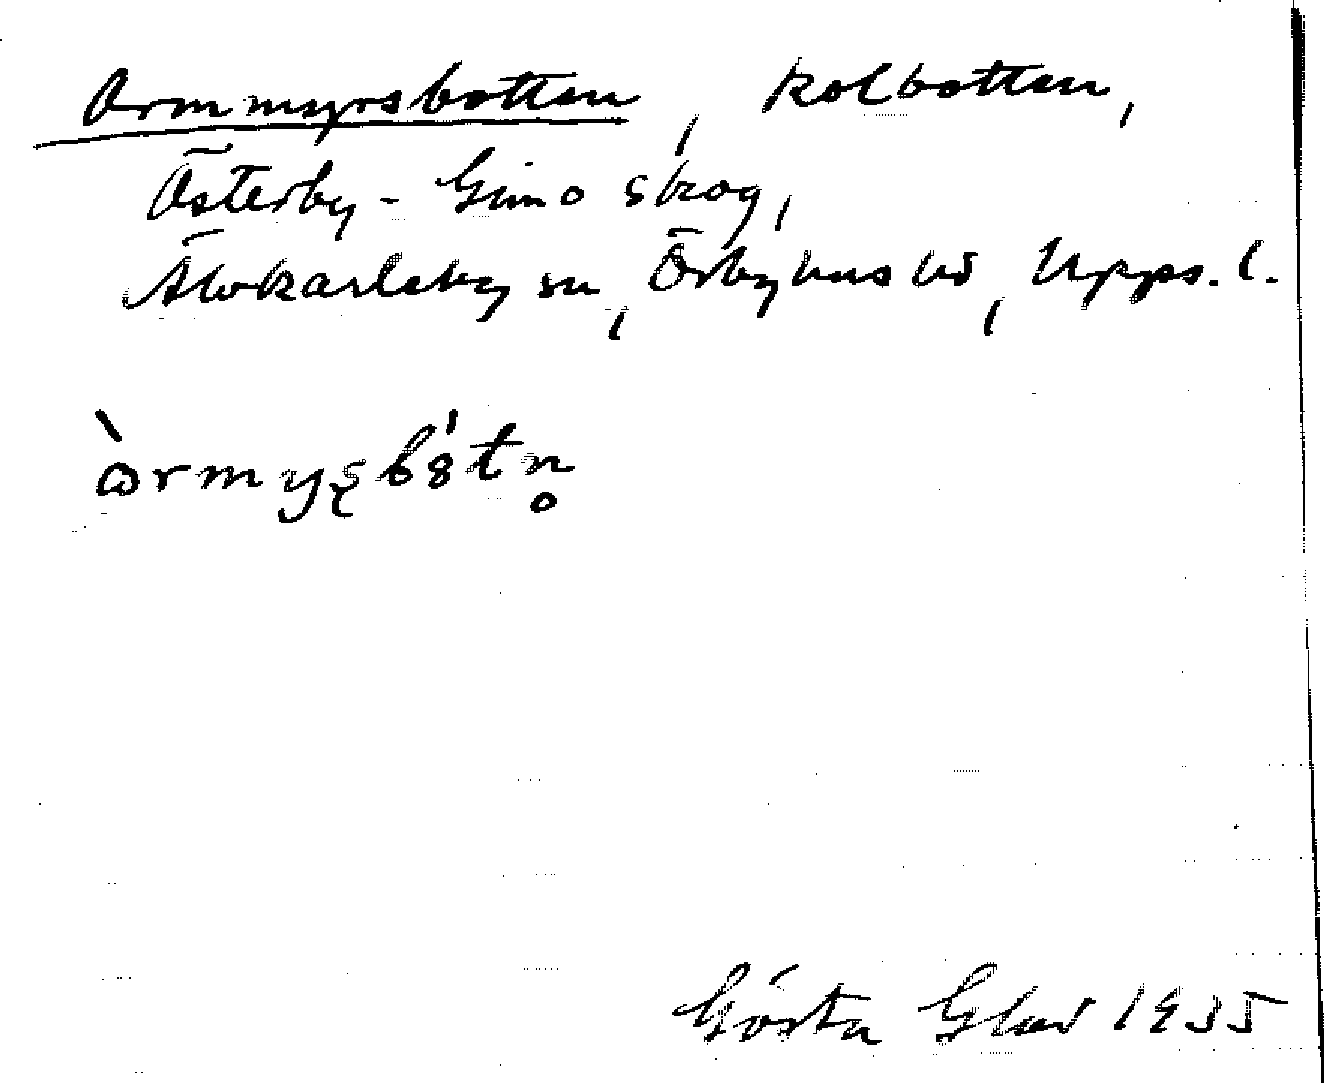 Ormmyrsbotten, kolbotten,
Österby-Gimo skog,
Älvkarleby sn, Örbyhus hd, Upps. l.
Gösta Glad 1935